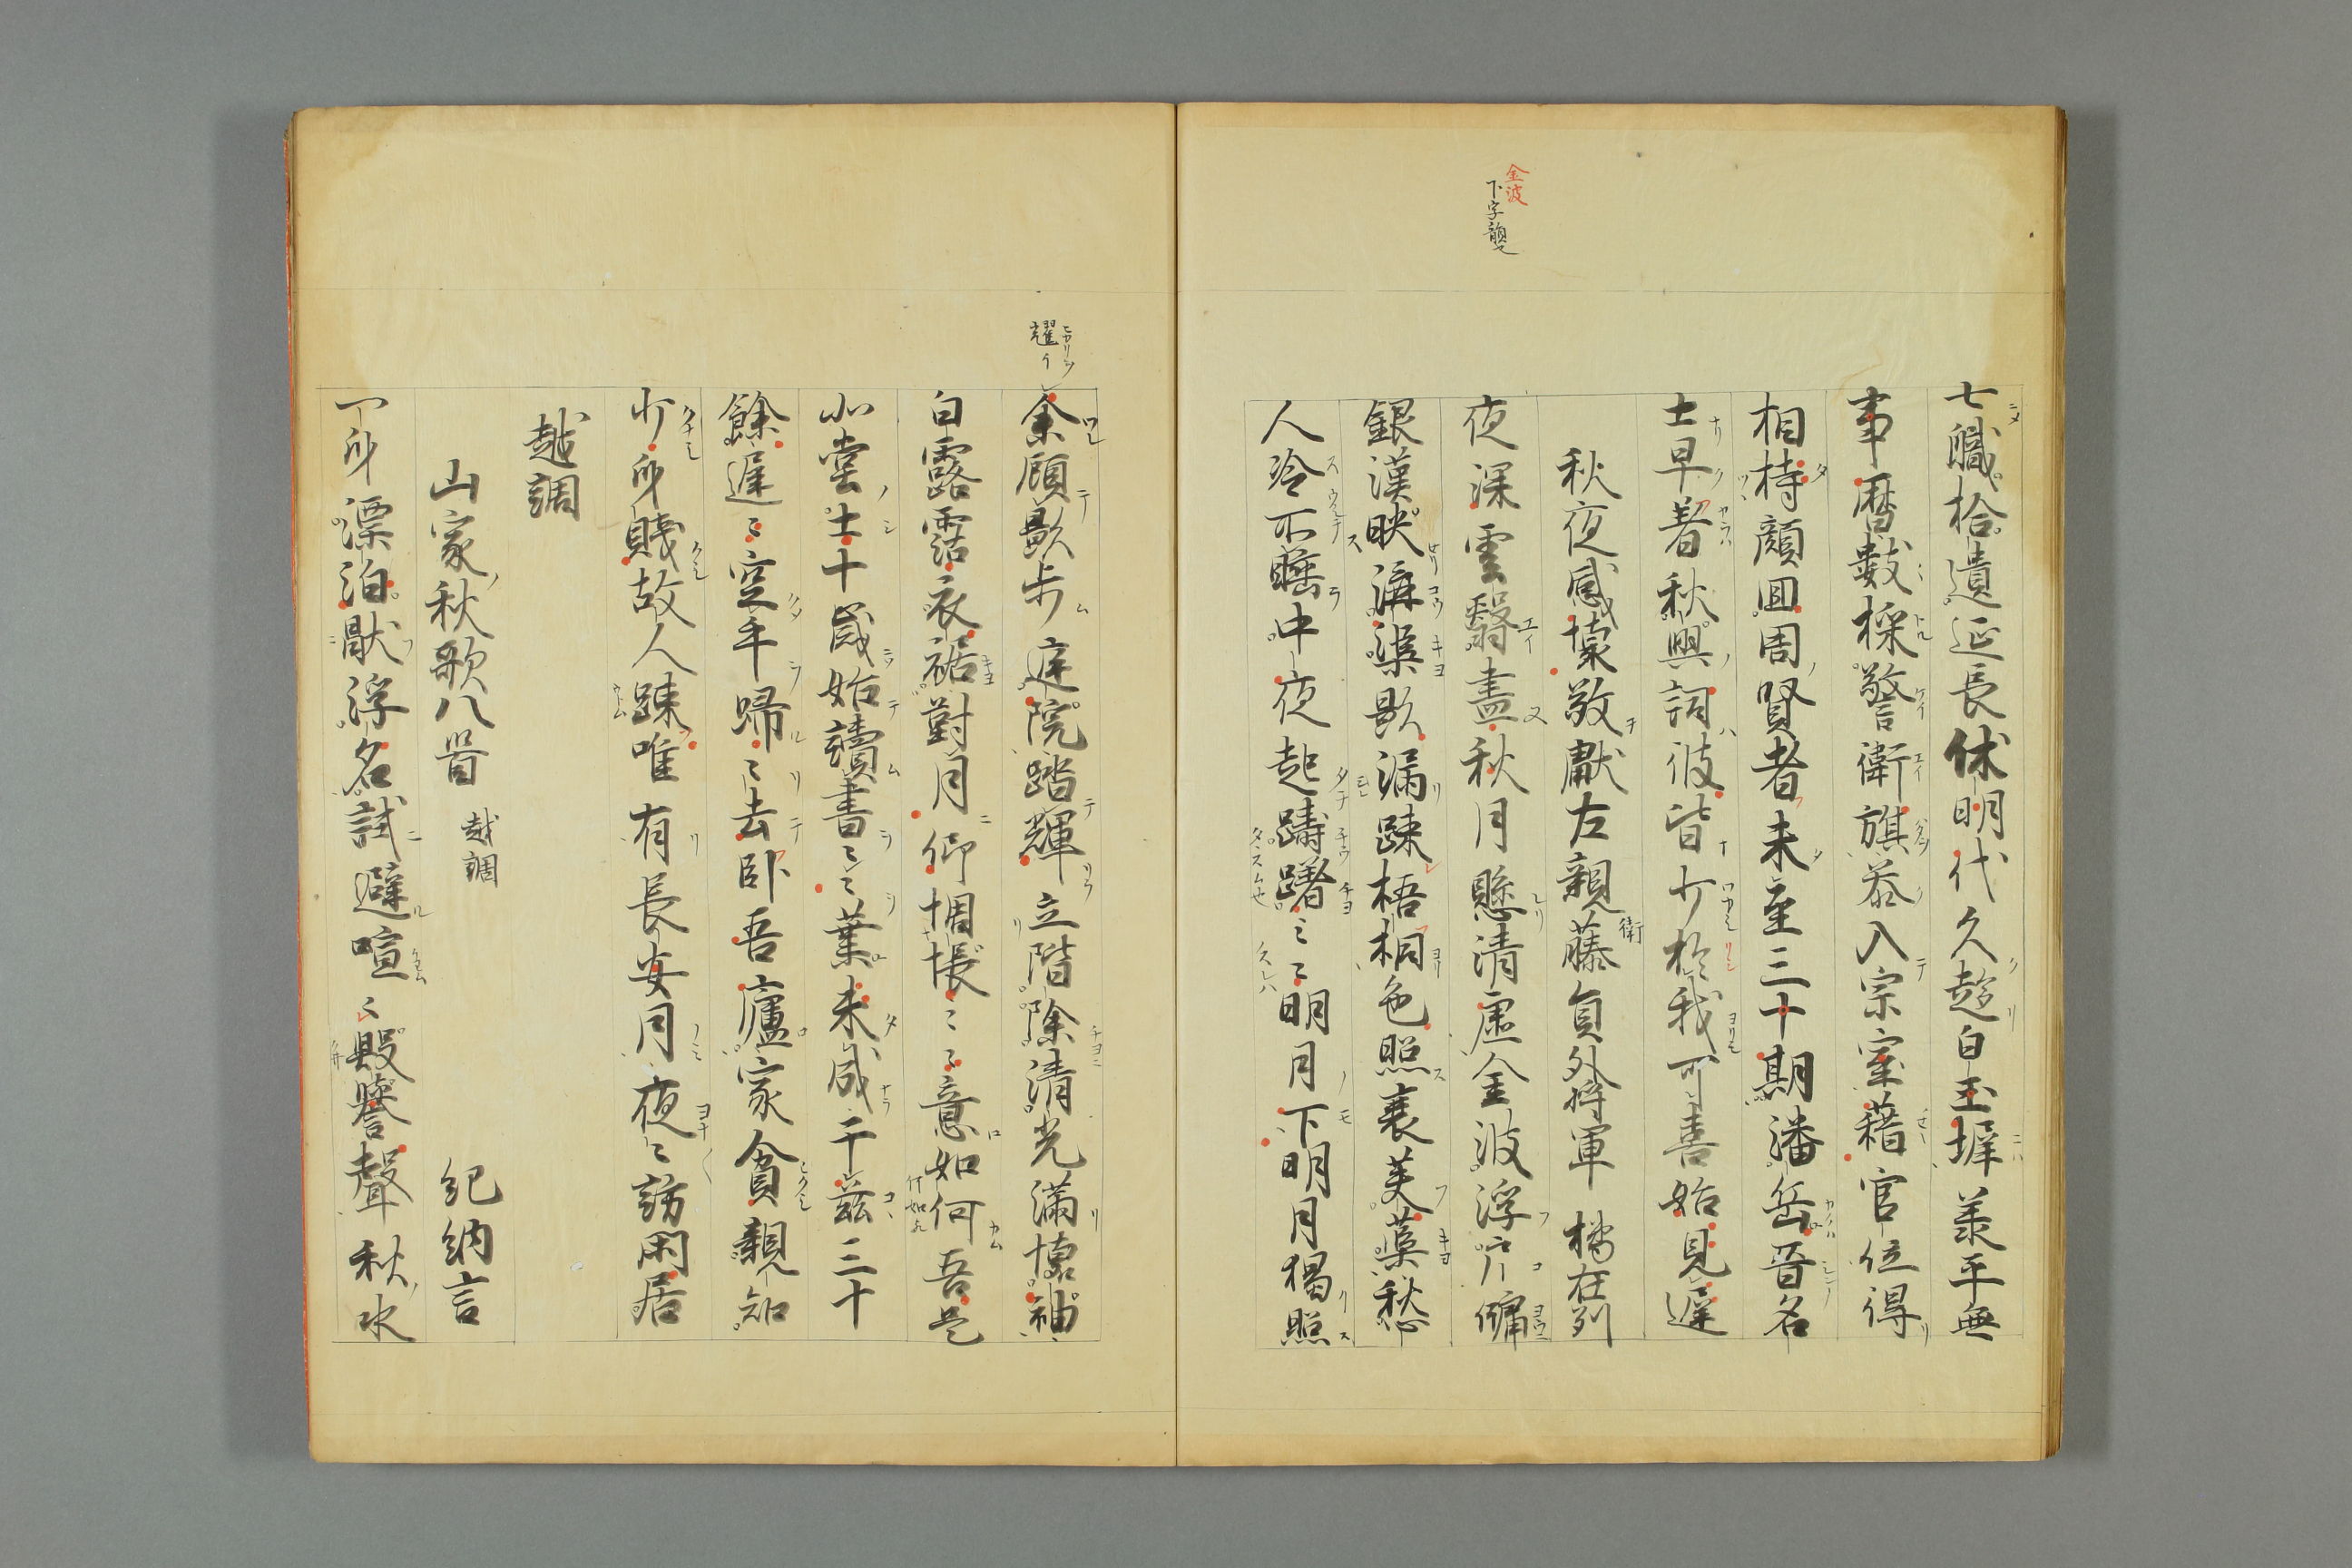 七職拾遺延長休明代久趍白玉墀養平無
事曆數採警衛旗忝入宗室藉官位得
相持顔囬周賢者未至三十期潘岳晉名
士早著秋興詞彼皆少於我可喜始見遲
秋夜感懷敬獻左親衛藤員外將軍 橘在列
夜深雲翳盡秋月懸清虛金波浮戶牖
銀漢映溝渠影漏踈梧桐色照衰芙蕖愁
人冷不睡中夜起躊躇〻〻明月下明月獨照
金波
下字韻也
余顧影步庭院踏輝立階除清光滿懷袖
耀イ
白露霑衣裾對月仰惆悵〻〻意如何吾是
北堂士十歲始讀書〻〻業未成于茲三十
餘遲〻空手歸〻去卧吾廬家貧親知
少身賤故人踈唯有長安月夜〻訪閑居
越調
山家秋歌八首 越調 紀納言
一身漂泊猒浮名試避喧〻毀譽聲秋水